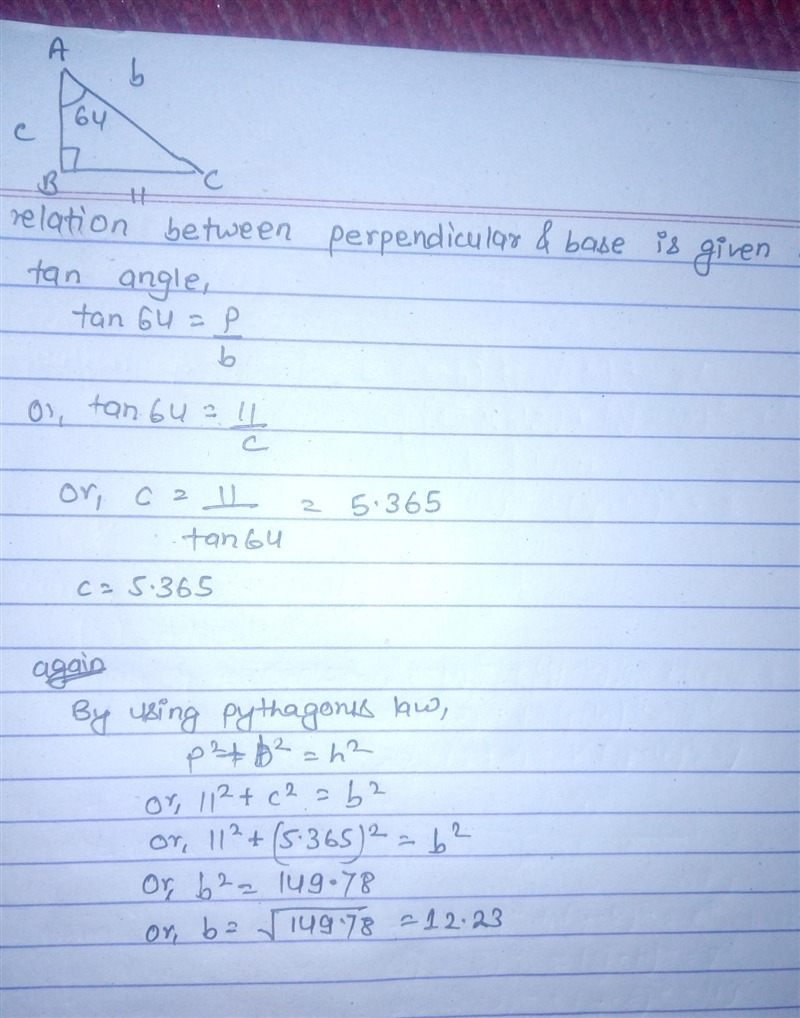 A
b
64
c
B
11
C
relation between perpendicular & base is given
tan angle,
tan 64 = p/b
or, tan 64 = 11/c
or, c = 11/tan 64 = 5.365
c = 5.365
again
By using pythagorus law,
p² + b² = h²
or, 11² + c² = b²
or, 11² + (5.365)² = b²
or, b² = 149.78
or, b = √149.78 = 12.23